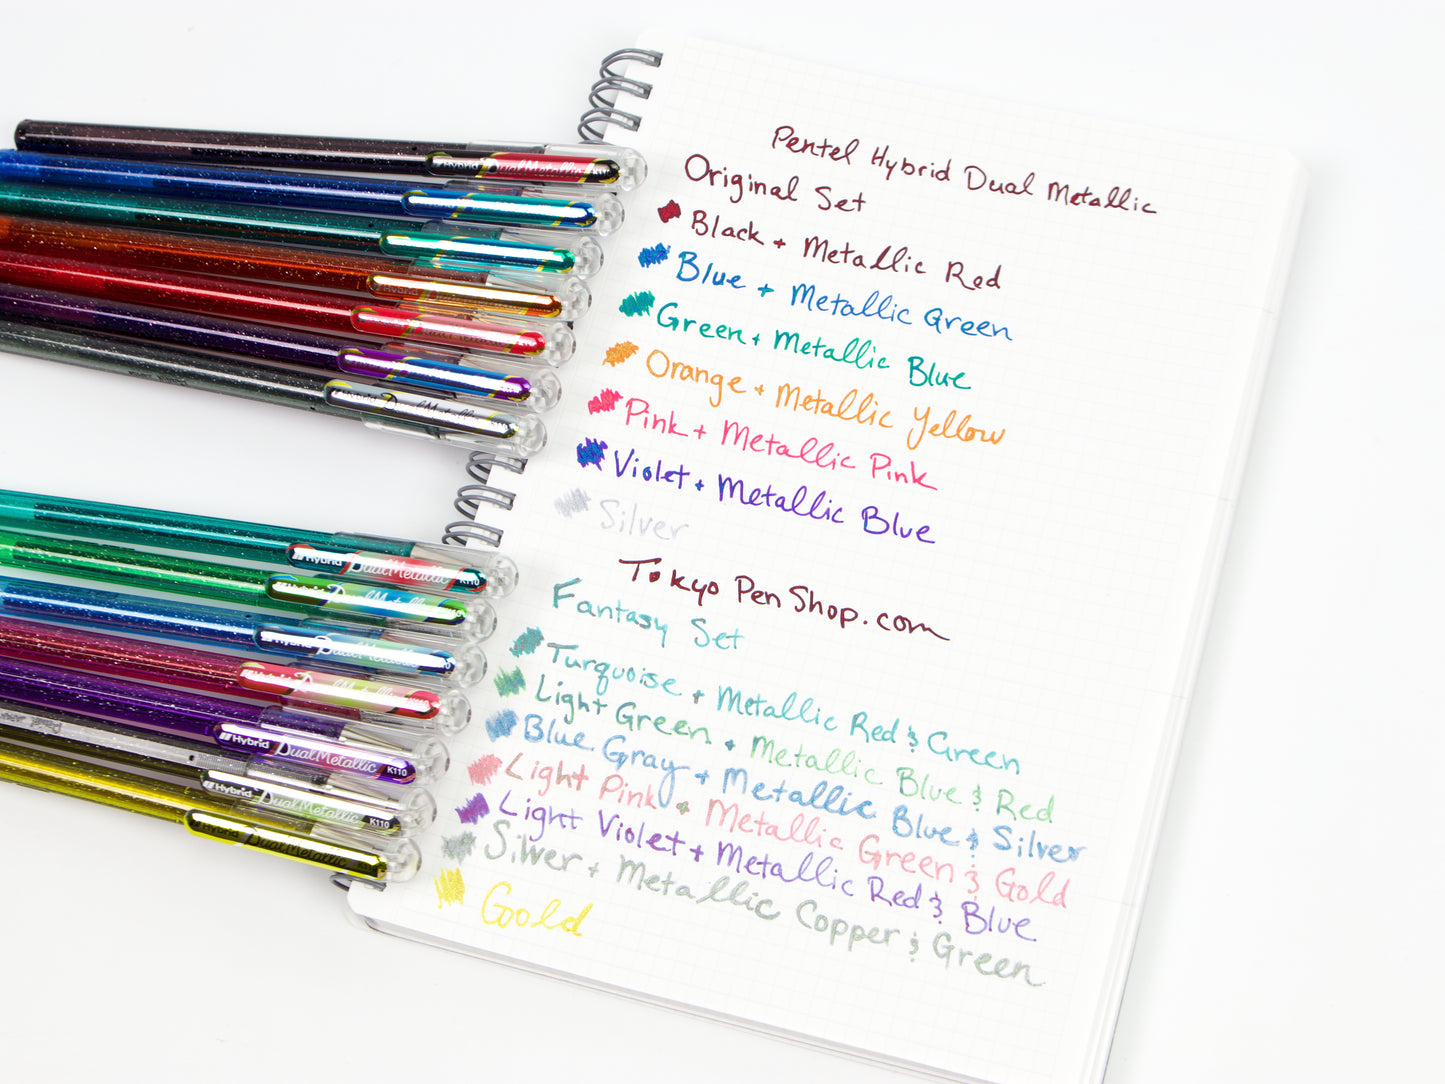 Pentel Hybrid Dual Metallic
Original Set
Black + Metallic Red
Blue + Metallic Green
Green + Metallic Blue
Orange + Metallic Yellow
Pink + Metallic Pink
Violet + Metallic Blue
Silver
Tokyo Pen Shop.com
Fantasy Set
Turquoise + Metallic Red & Green
Light Green + Metallic Blue & Red
Blue Gray + Metallic Blue & Silver
Light Pink + Metallic Green & Gold
Light Violet + Metallic Red & Blue
Silver + Metallic Copper & Green
Gold
Hybrid DualMetallic
Hybrid DualMetallic
Hybrid DualMetallic K110
Hybrid DualMetallic
Hybrid DualMetallic
Hybrid DualMetallic
Hybrid DualMetallic K110
Hybrid DualMetallic K110
Hybrid DualMetallic